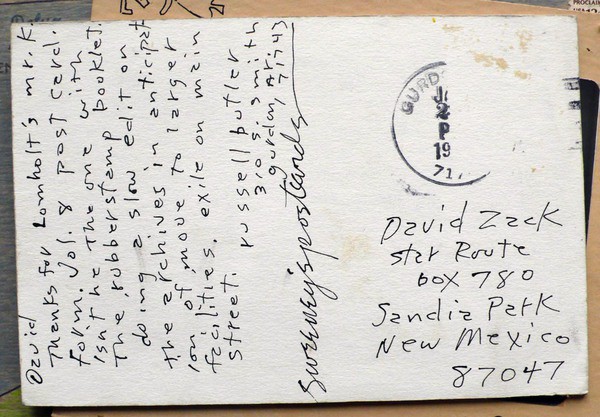 David
Thanks for Lomholt's mr. K.
form. Vol. 8 post card.
isn't he the one with
the rubberstamp booklet.
doing a slow edit on
the archives in anticipat
ion of move to larger
facilities. exile on main
street.
russell butler
310 s. smith
gurdon, Ar.
71743
sweeney's postcards
GURD
2
P
19
71
David Zack
star Route
box 780
Sandia Park
New Mexico
87047
PROCLAIM